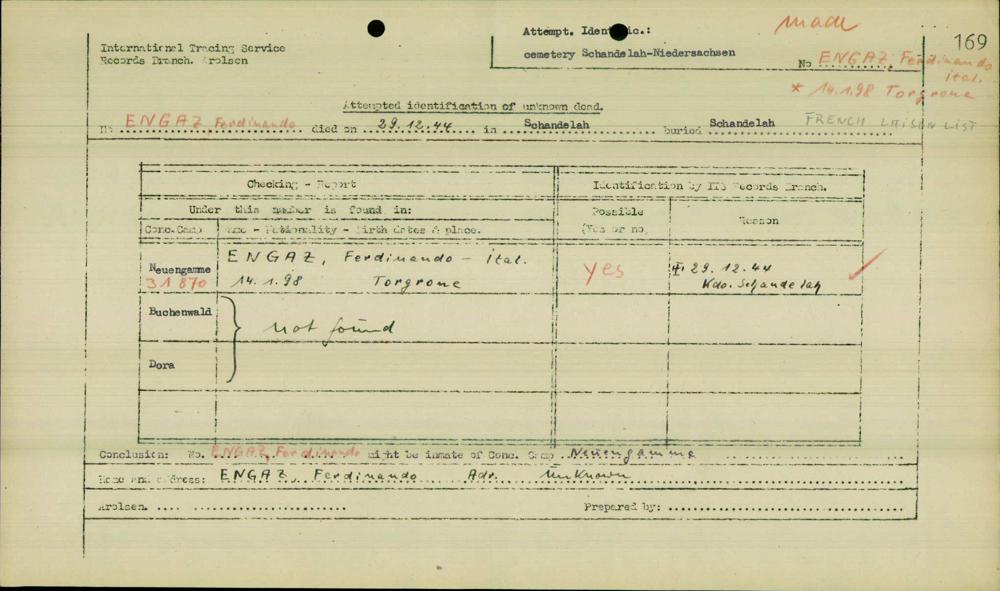 made
169
International Tracing Service
Records Branch. Arolsen
Attempt. Identific.:
cemetery Schandelah-Niedersachsen
No ENGAZ, Ferdinando
ital.
* 14.1.98 Torgrone
Attempted identification of unknown dead.
No ENGAZ, Ferdinando died on 29.12.44 in Schandelah buried Schandelah FRENCH LAISON LIST
Checking - Report
Identification by ITS Records Branch.
Under this number is found in:
Possible
(Yes or no)
Reason
Conc.Camp
Name - Nationality - Birth dates & place.
Neuengamme
31 870
ENGAZ, Ferdinando - ital.
14.1.98 Torgrone
yes
29.12.44
Kdo. Schandelah
Buchenwald
not found
Dora
Conclusion: No. ENGAZ, Ferdinando might be inmate of Conc. Camp Neuengamme
Name and address: ENGAZ, Ferdinando Adr. unknown
Arolsen.
Prepared by: